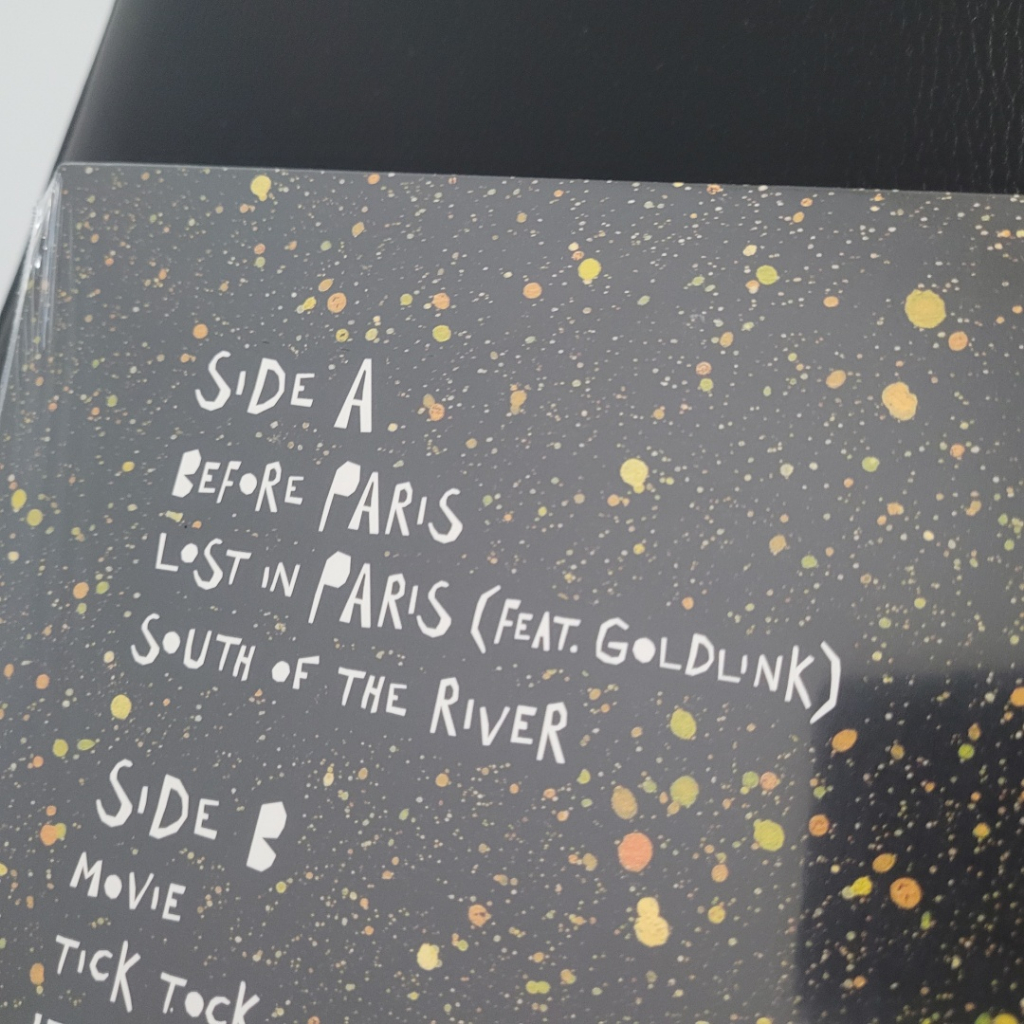 SIDE A
BEFORE PARIS
LOST IN PARIS (FEAT. GOLDLINK)
SOUTH OF THE RIVER
SIDE B
MOVIE
TICK TOCK